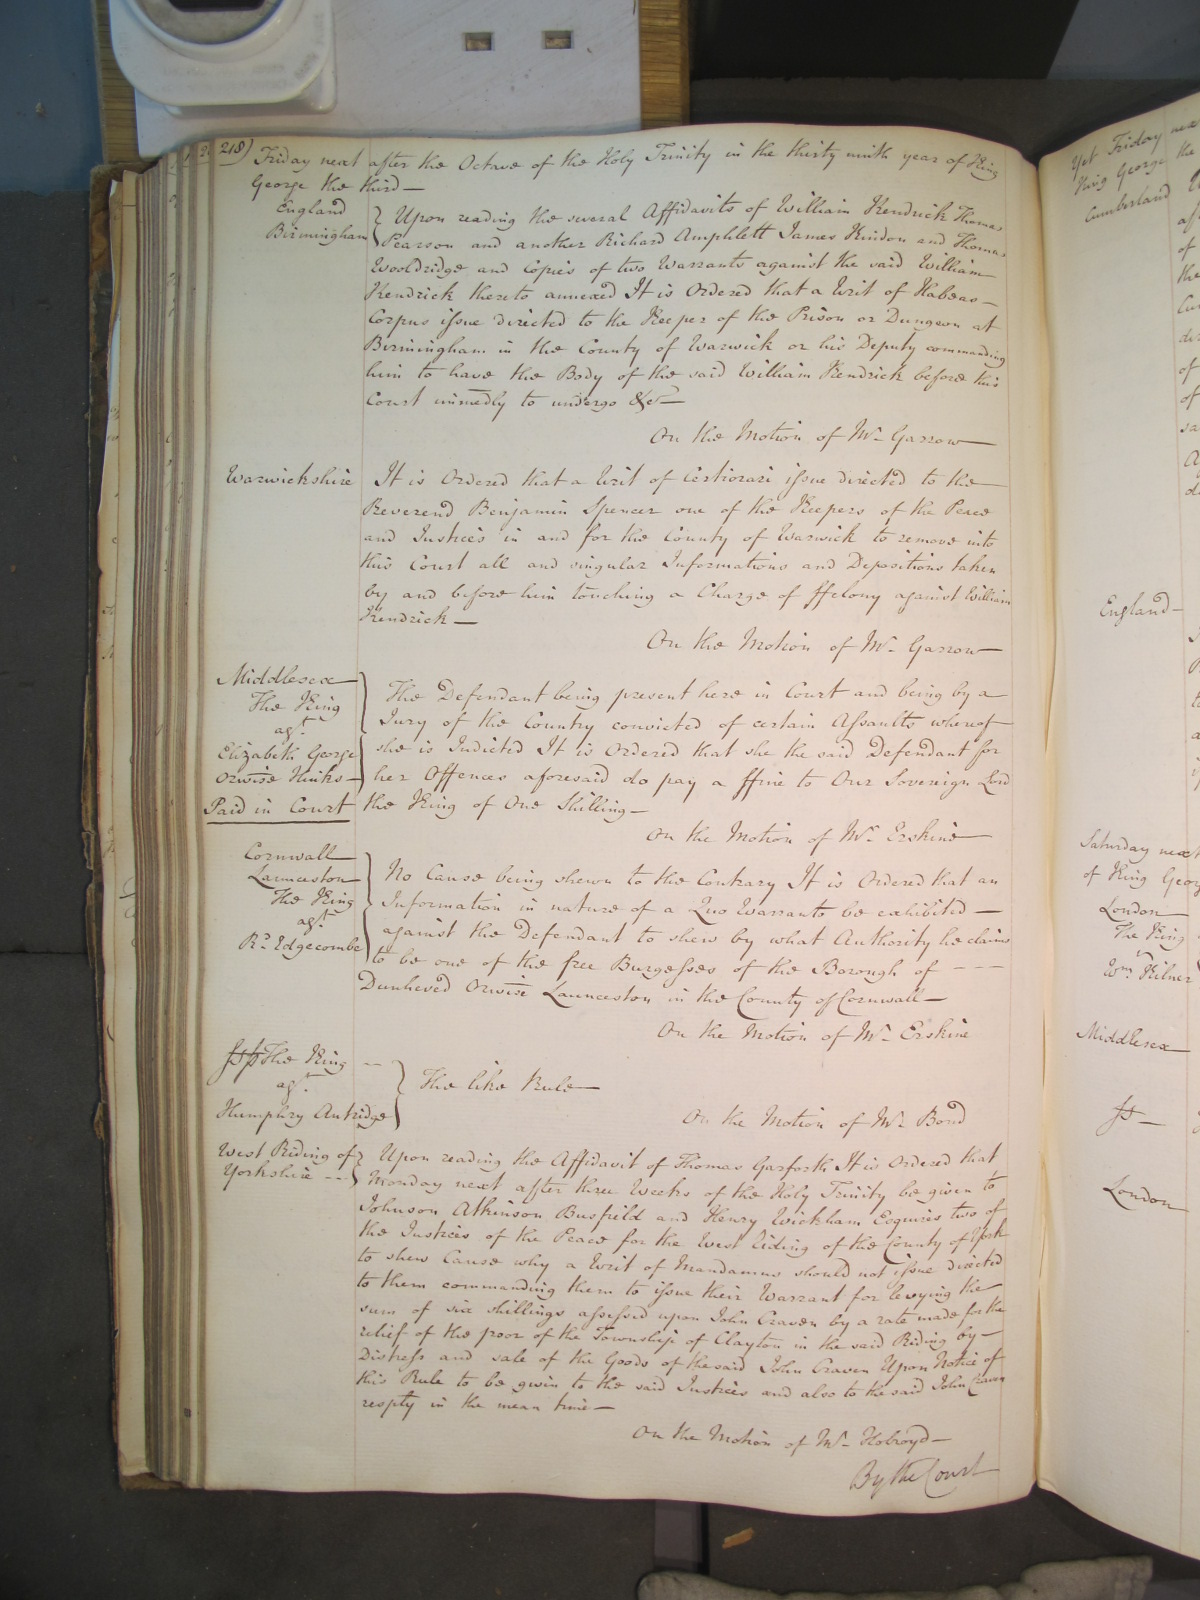 218)
Friday next after the Octave of the Holy Trinity in the thirty ninth year of King
George the third—
England
Birmingham
Upon reading the several Affidavits of William Kendrick Thomas
Pearson and another Richard Amphlett James Kindon and Thomas
Wooldridge and Copies of two Warrants against the said William
Kendrick thereto annexed It is Ordered that a Writ of Habeas—
Corpus issue directed to the Keeper of the Prison or Dungeon at
Birmingham in the County of Warwick or his Deputy commanding
him to have the Body of the said William Kendrick before this
Court immedly to undergo &c—
On the Motion of Mr. Garrow—
Warwickshire
It is Ordered that a Writ of Certiorari issue directed to the—
Reverend Benjamin Spencer one of the Keepers of the Peace
and Justices in and for the County of Warwick to remove into
this Court all and singular Informations and Depositions taken
by and before him touching a Charge of ffelony against William
Kendrick—
On the Motion of Mr. Garrow—
Middlesex—
The King
agt.
Elizabeth George
orwise Hinks—
Paid in Court
The Defendant being present here in Court and being by a
Jury of the Country convicted of certain Assaults whereof
she is Indicted It is Ordered that she the said Defendant for
her Offences aforesaid do pay a ffine to Our Sovereign Lord
the King of One Shilling—
On the Motion of Mr. Erskine—
Cornwall
Launceston
The King
agt.
Rd. Edgecombe
No Cause being shewn to the Contrary It is Ordered that an
Information in nature of a Quo Warranto be exhibited—
against the Defendant to shew by what Authority he claims
to be one of the free Burgesses of the Borough of - - -
Dunheved Orwise Launceston in the County of Cornwall—
On the Motion of Mr. Erskine
The King - -
agt.
Humphry
The like Rule—
On the Motion of Mr. Bond
West Riding of
Yorkshire - -
Upon reading the Affidavit of Thomas Garforth It is Ordered that
Monday next after three Weeks of the Holy Trinity be given to
Johnson Atkinson Busfield and Henry Wickham Esquires two of
the Justices of the Peace for the West Riding of the County of York
to shew Cause why a Writ of Mandamus should not issue directed
to them commanding them to issue their Warrant for levying the—
sum of six shillings assessed upon John Craven by a rate made for the
relief of the poor of the Township of Clayton in the said Riding by—
Distress and sale of the Goods of the said John Craven Upon Notice of
this Rule to be given to the said Justices and also to the said John Craven
resptly in the mean time—
On the Motion of Mr. Holroyd—
By the Court
Yet Friday next
King George
Cumberland
England—
Saturday next
of King Geor
London—
The King
Wm. Kilner
Middlesex—
London